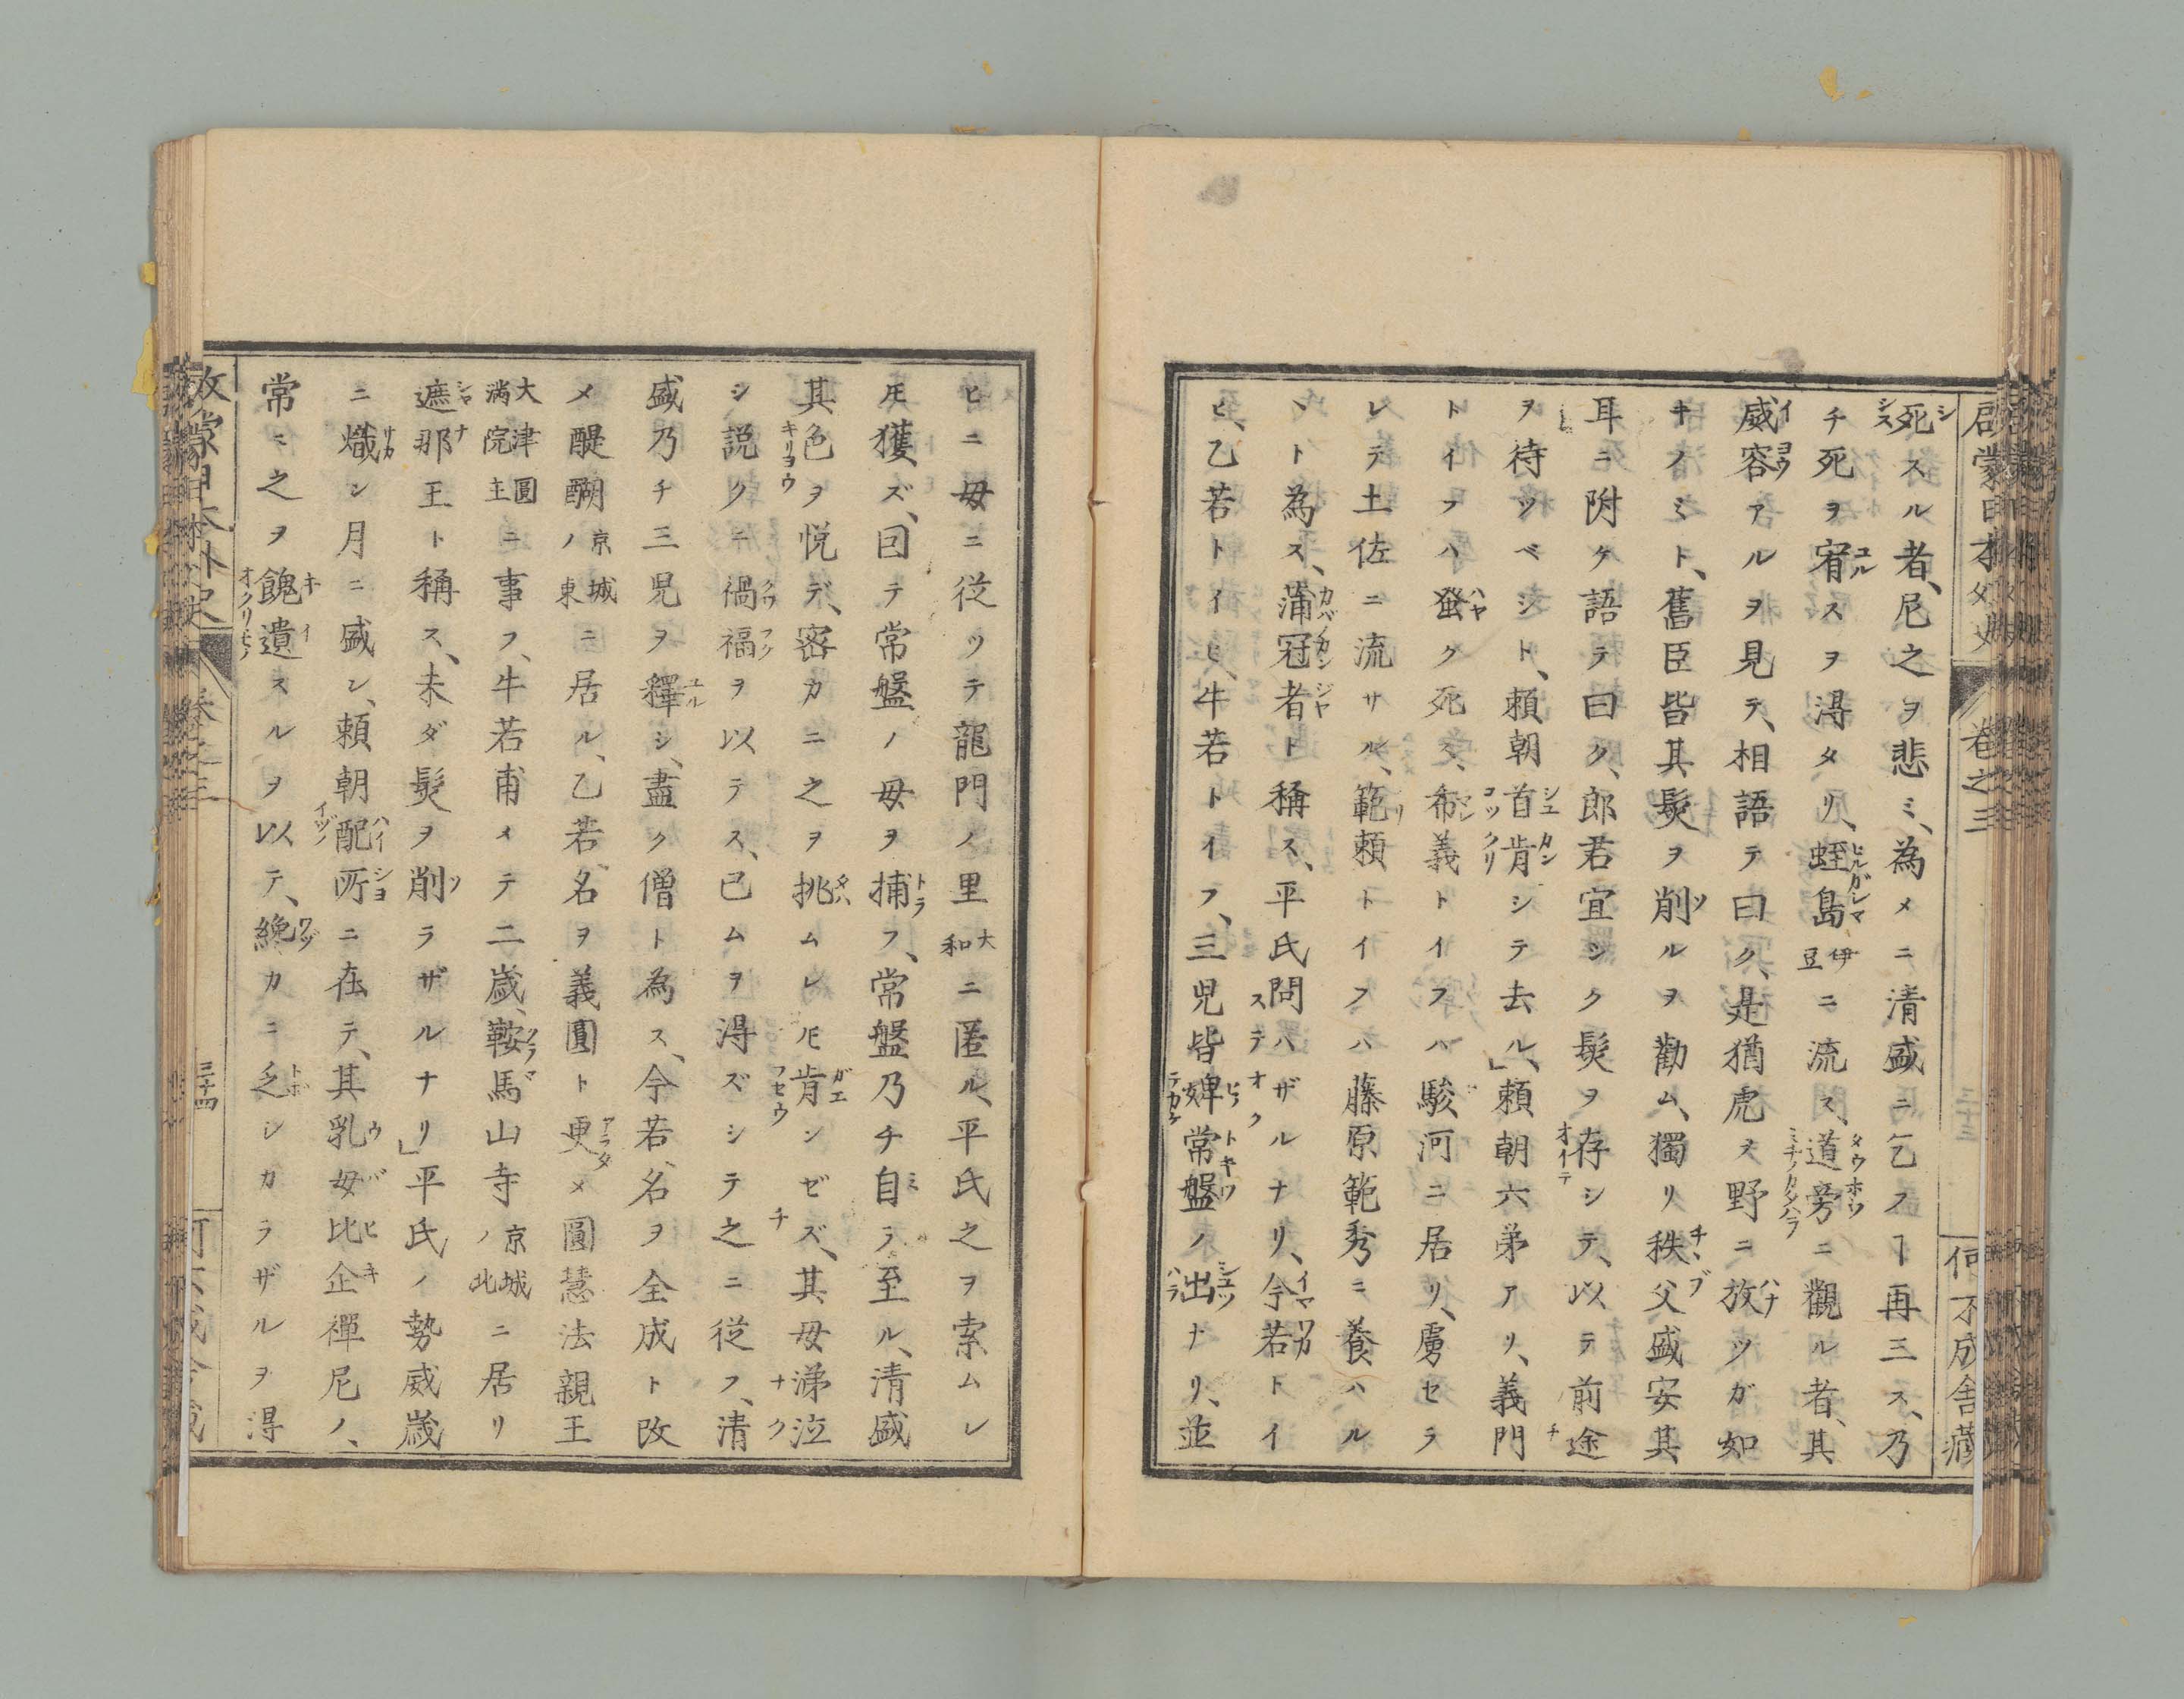 死スル者、尼之ヲ悲ミ、為メニ清盛ニ乞フヿ再三ス、乃
チ死ヲ宥スヲ淂タリ、蛭島伊豆ニ流ス、道旁ニ觀ル者、其
威容アルヲ見テ、相語テ曰ク、是猶虎ヲ野ニ放ツガ如
キノミト、舊臣皆其髮ヲ削ルヲ勸ム、獨リ秩父盛安其
耳ニ附ケ語テ曰ク、郎君宜シク髮ヲ存シテ、以テ前途
ヲ待ツベシト、頼朝首肯シテ去ル、」頼朝六弟アリ、義門
トイフハ蚤ク死ス、希義トイフハ駿河ニ居リ、虜セラ
レテ土佐ニ流サル、範頼トイフハ藤原範秀ニ養ハル
丶ト為ス、蒲冠者ト稱ス、平氏問ハザルナリ、今若トイ
ヒ、乙若トイヒ、牛若トイフ、三児皆婢常盤ノ出ナリ、並
ヒニ母ニ從ツテ龍門ノ里大和ニ匿ル、平氏之ヲ索ムレ
𪜈獲ズ、囙テ常盤ノ母ヲ捕フ、常盤乃チ自ラ至ル、清盛
其色ヲ悦デ、密カニ之ヲ挑ムレ𪜈肯ンゼズ、其母涕泣
シ説クニ禍福ヲ以テス、已ムヲ淂ズシテ之ニ從フ、清
盛乃チ三児ヲ釋シ、盡ク僧ト為ス、今若、名ヲ全成ト改
メ醍醐ノ京城東ニ居ル、乙若、名ヲ義圓ト更メ圓慧法親王
大津圓滿院主ニ事フ、牛若甫メテ二歳、鞍馬山寺京城ノ北ニ居リ
遮那王ト稱ス、未ダ髮ヲ削ラザルナリ」平氏ノ勢威歳
ニ熾ン月ニ盛ン、頼朝配所ニ在テ、其乳母比企禪尼ノ、
常ニ之ヲ餽遺スルヲ以テ、纔カニ乏シカラザルヲ淂
啓蒙日本外史
卷之三
何不成舎蔵
三十四